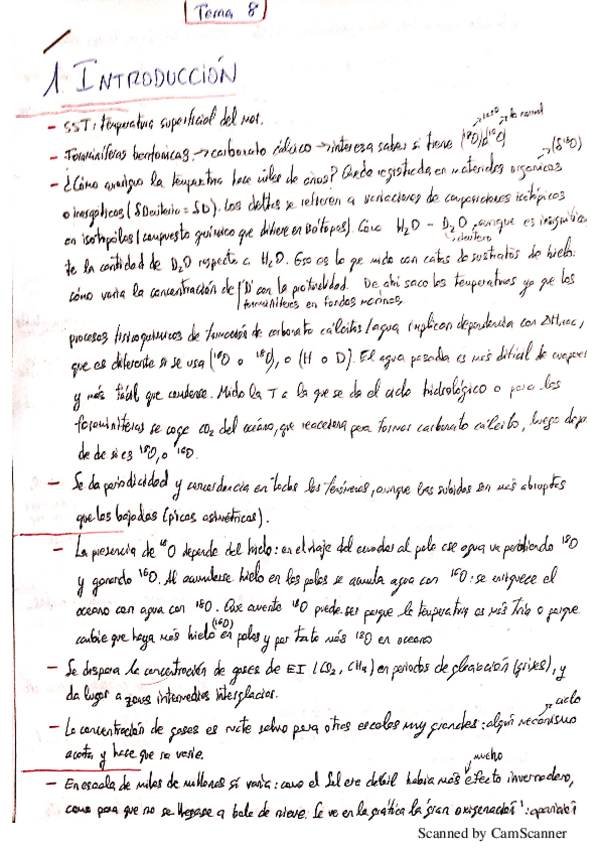 Tema 8
1. INTRODUCCIÓN
- SST: temperatura superficial del mar.
raro la normal
- Foraminíferos bentónicos → carbonato cálcico → interesa saber si tiene (¹⁸O)/(¹⁶O)
(δ¹⁸O)
- ¿Cómo averiguo la temperatura hace miles de años? Queda registrada en materiales orgánicos
o inorgánicos (δDeuterio = δD). Los deltas se refieren a variaciones de composiciones isotópicas
en isotopólos (compuesto químico que difiere en isótopos). Como H₂O - D₂O, aunque es
deuterio
te la cantidad de D₂O respecto a H₂O. Eso es lo que mido con catas de sustratos de hielo:
cómo varía la concentración de 'D' con la profundidad. De ahí saco las temperaturas ya que los
foraminíferos en fondos marinos.
procesos fisicoquímicos de formación de carbonato cálcico/agua implican dependencia con
que es diferente si se usa (¹⁶O o ¹⁸O), o (H o D). El agua pesada es más difícil de evaporar
y más fácil que condense. Mido la T a la que se da el ciclo hidrológico o para los
foraminíferos se coge CO₂ del océano, que reacciona para formar carbonato cálcico, luego depen
de de si es ¹⁸O, o ¹⁶O.
- Se da periodicidad y concordancia en todos los fenómenos, aunque las subidas son más abruptas
que las bajadas (picos asimétricos).
- La presencia de ¹⁸O depende del hielo: en el viaje del ecuador al polo ese agua va perdiendo ¹⁸O
y ganando ¹⁶O. Al acumularse hielo en los polos se acumula agua con ¹⁶O: se enriquece el
océano con agua con ¹⁸O. Que aumente ¹⁸O puede ser porque la temperatura es más fría o porque
(¹⁶O)
cambie que haya más hielo en polos y por tanto más ¹⁸O en océano
- Se dispara la concentración de gases de EI (CO₂, CH₄) en periodos de glaciación (grises), y
da lugar a zonas intermedias interglaciar.
ciclo
- La concentración de gases es cte salvo para otras escalas muy grandes: algún mecanismo
acota y hace que no varíe.
mucho
- En escala de miles de millones sí varía: como el Sol era débil había más efecto invernadero,
como para que no se llegase a bola de nieve. Se ve en la gráfica la 'gran oxigenación':
Scanned by CamScanner